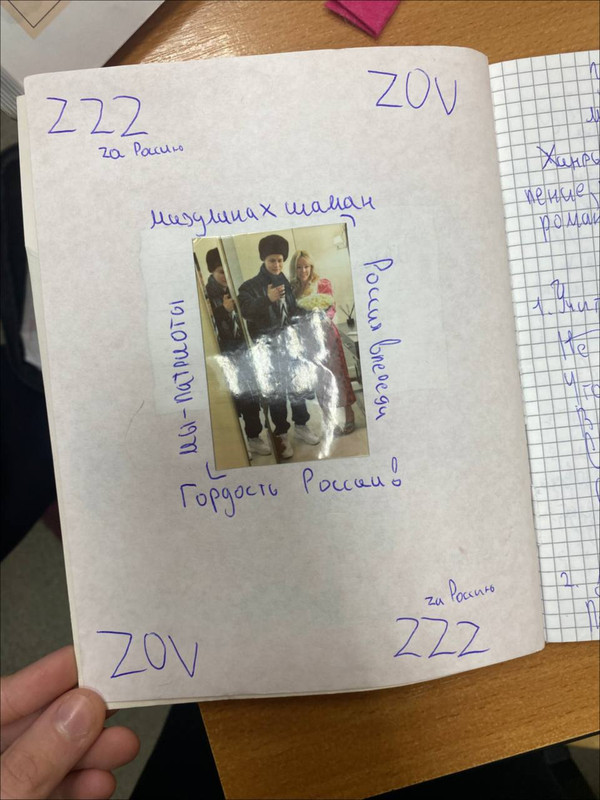 ZZZ
за Россию
ZOV
мизулина х шаман
Россия впереди
мы - патриоты
Гордость России
ZOV
за Россию
ZZZ
Жанры
рома
1. Учит
Не
2.